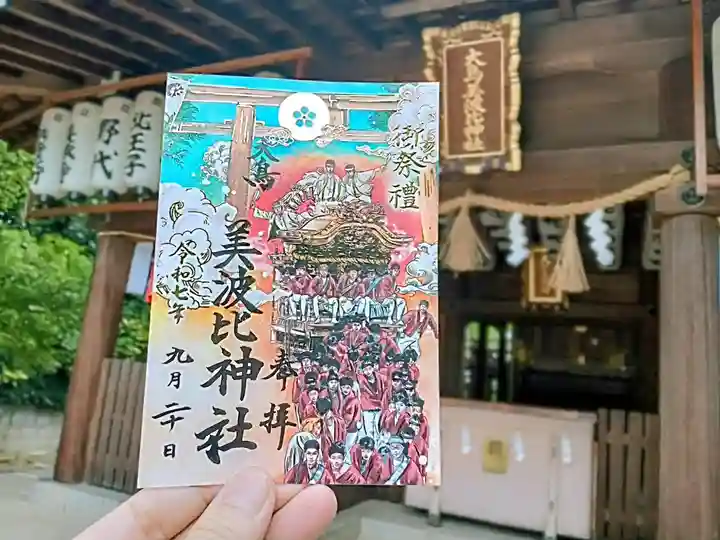 御祭禮
奉拝
大鳥
美波比神社
令和七年
九月二十日
大鳥美波比神社
北王子
野代